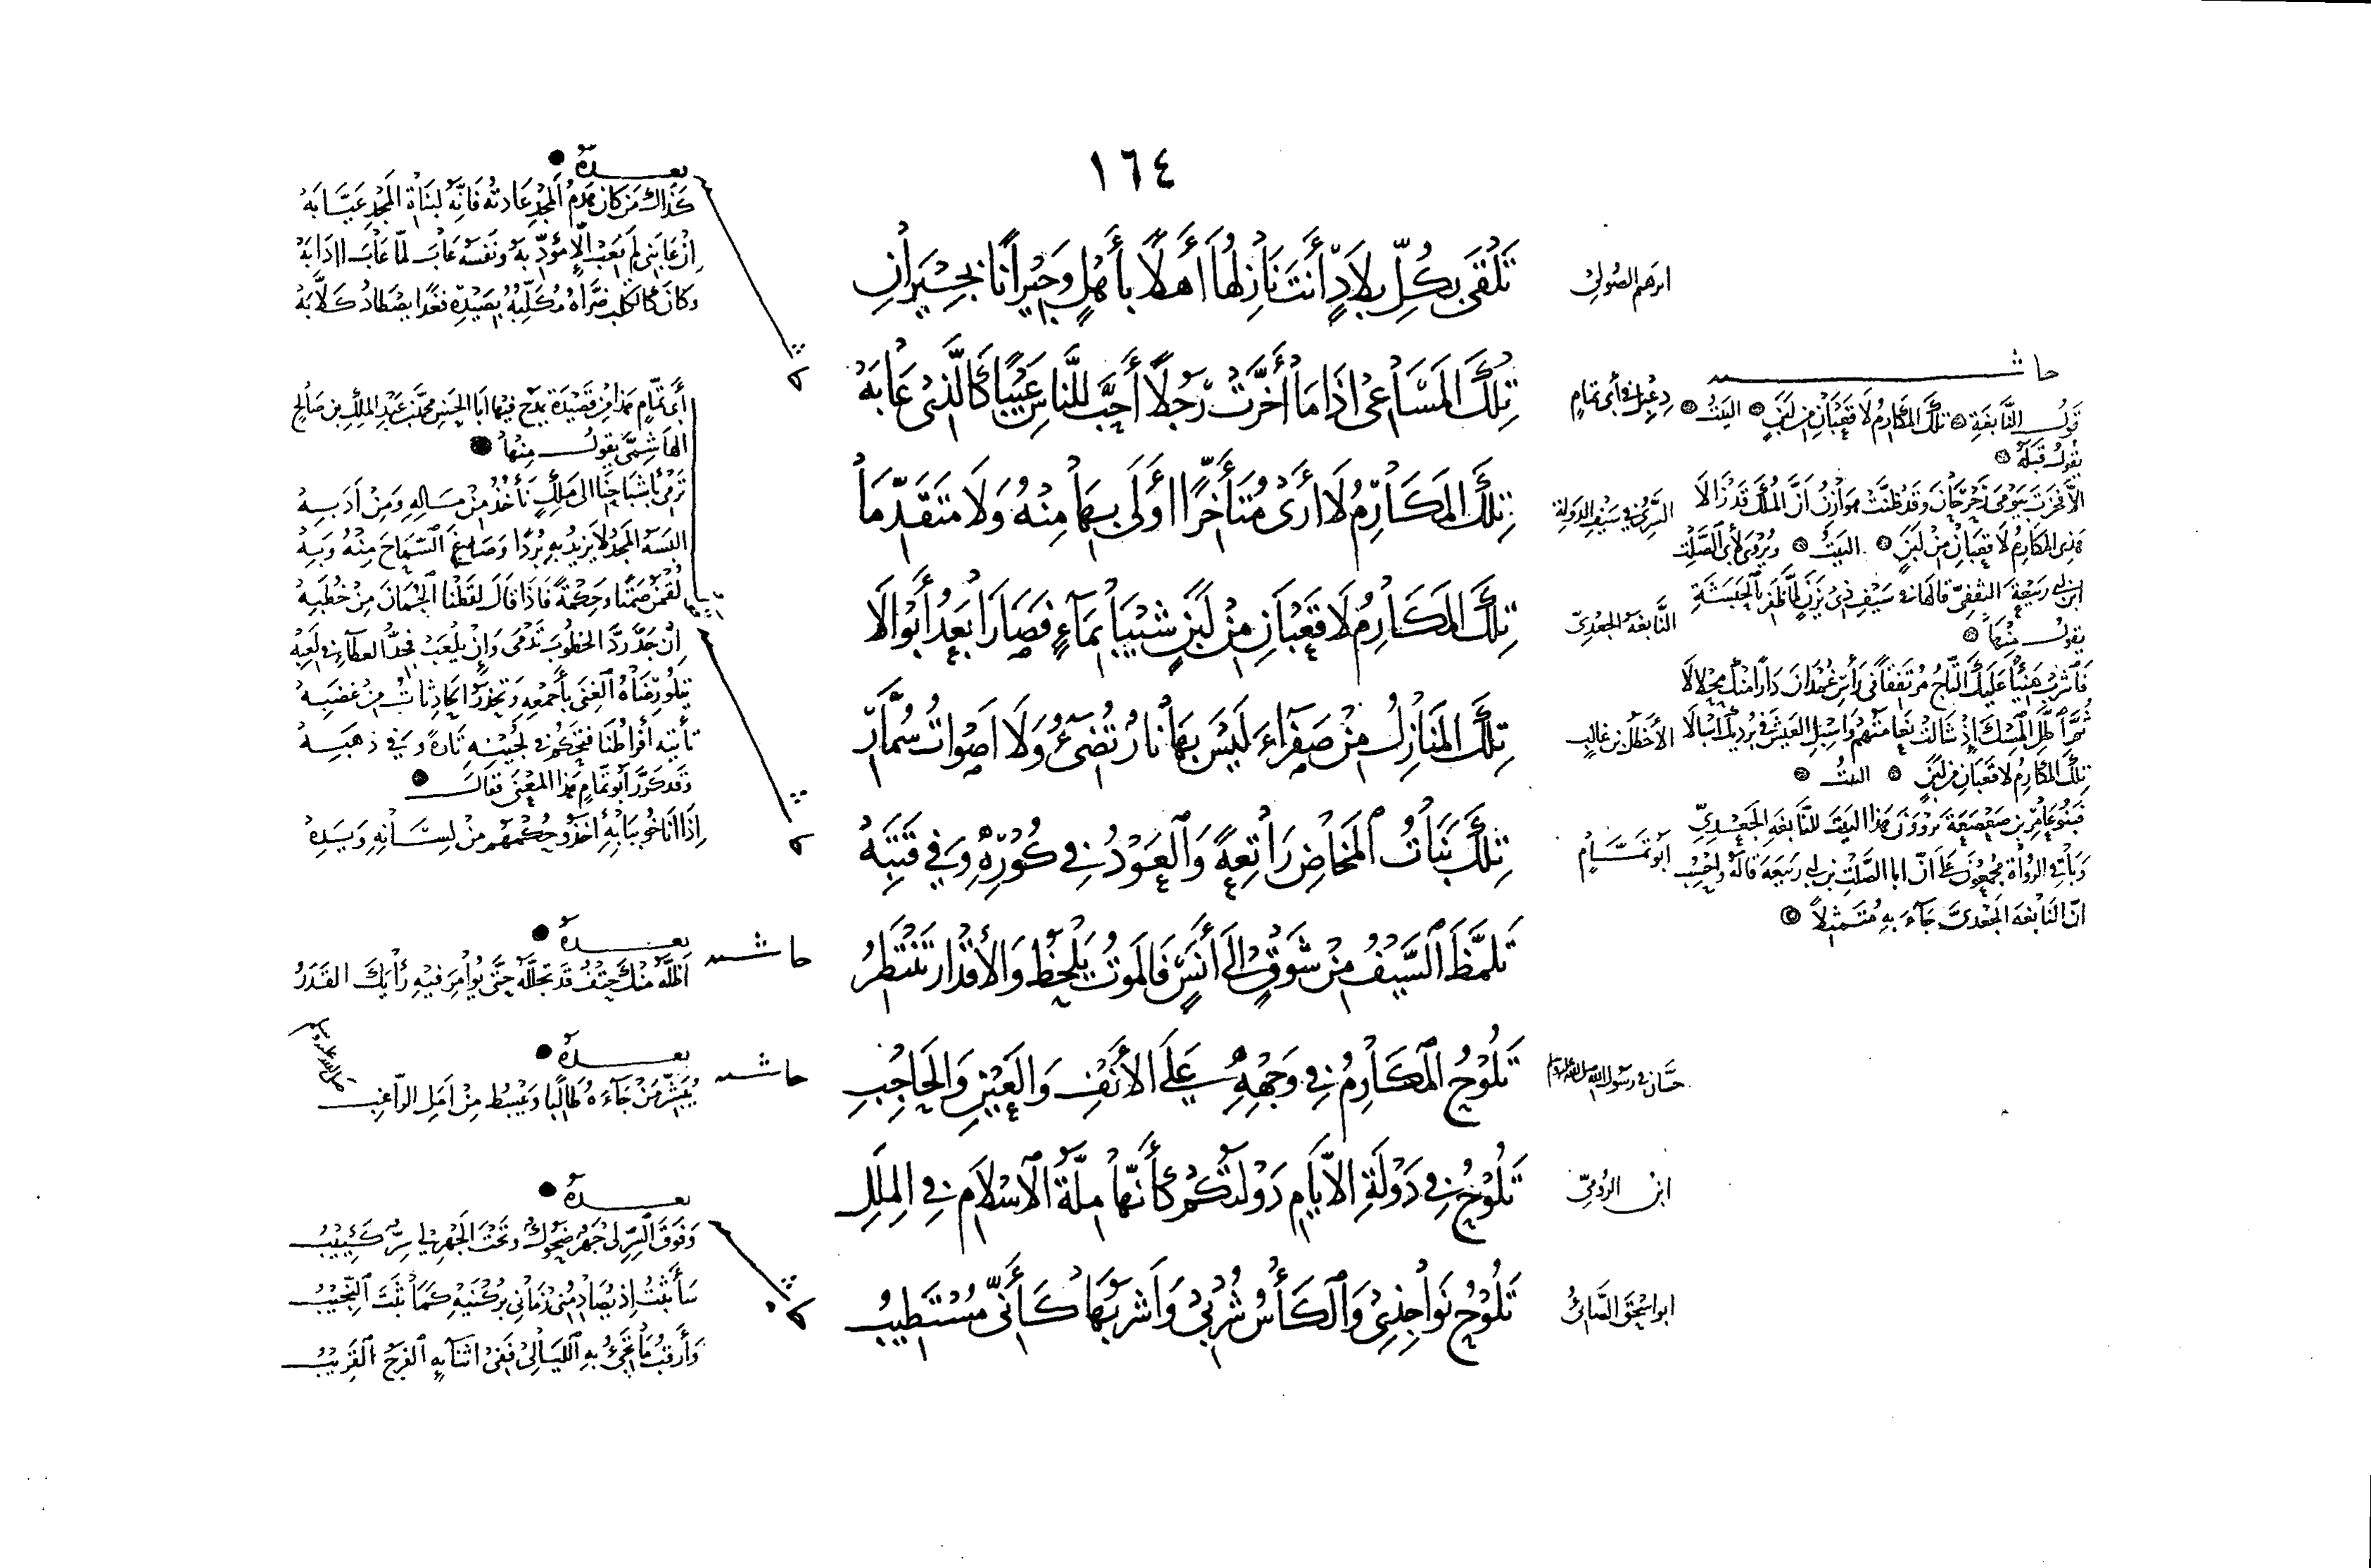 ١٦٤
ابرهيم الصولي
تَلْقَى بِكُلِّ بِلَادٍ أَنتَ نَازِلُهَا أَهلًا بأَهْلٍ وَجِيْرَانًا بِجِيْرَانِ
دعبل في أبي تمام
تِلْكَ المَسَاعِي اذَا مَا أَخَّرَتْ رَجُلًا أَحَبَّ لِلنَّاسِ عَيْبًا كَالَّذِيْ عَابَهُ
السَّرِيُّ في سَيْفِ الدولة
تِلْكَ المَكَارِمُ لَا أَرَى مُتَأَخِّرًا أَوْلَى بِهَا مِنْهُ وَلَا مُتَقَدِّمَا
النَّابغة الجعديّ
تِلْكَ المَكَارِمُ لَا قَعْبَانِ مِنْ لَبَنٍ شِيْبَا بِمَاءٍ فَصَارَا بَعْدُ أَبْوَالَا
الأخطل بن غالب
تِلْكَ المَنَازِلُ مِنْ صَفْرَاءَ لَيْسَ بِهَا نَارٌ تُضِيْءُ وَلَا اصْوَاتُ سُمَّارِ
أبو تمَّام
تِلْكَ بَنَاتُ المَخَاضِ رَاتِعَةً وَالْعَوْدُ فِي كُوْرِهِ وَفِي قَتَبِهْ
تَلَمَّظَ السَّيْفُ مِنْ شَوْقٍ إلَى أَنَسٍ فَالمَوْتُ يَلْحَظُ وَالأَقْدَارُ تَنْتَظِرُ
حسَّان في رسول الله صلى الله عليه وسلم
تَلُوْحُ المَكَارِمُ فِي وَجْهِهِ عَلَى الأَنْفِ وَالعَيْنِ وَالحَاجِبِ
ابن الرُّوميّ
تَلُوْحُ فِي دَوْلَةِ الأَيَّامِ دَوْلَتُكُمْ كَأَنَّهَا مِلَّةُ الاسْلَامِ فِي المِلَلِ
ابو اسحق الصَّابئ
تَلُوْحُ نَوَاجِذِيْ وَالْكَأْسُ شُرْبِيْ وَاشْرَبُهَا كَأَنِّي مُسْتَطِيْبُ
حاشية
قَولُ النَّابغَةِ تلكَ المَكارِمُ لَا قَعْبَانِ مِن لَبَنٍ البيتُ
يقول قبلَهُ
هذي المكارِمُ لَا قعبانِ مِنْ لَبَنٍ البيتُ ويُروَى لأبي الصَّلْتِ
ابن ابي ربيعة الثقفيّ قالها في سيف ذي يزن لمَّا ظفر بالحبشَةِ
يقولُ منها
فَاشْرَبْ هَنِيْئًا عَلَيْكَ التَّاجُ مُرْتَفِقًا في رَأسِ غُمْدَانَ دَارًا مِنْكَ مِحْلَالَا
ثُمَّ اطَّلِ المِسْكَ اذْ شَالَتْ نَعَامَتُهُمْ وَاسْبِلِ العَيْشَ في بُرْدَيْكَ اسْبَالَا
تِلْكَ المكارِمُ لَا قَعْبَانِ مِن لَبَنٍ البيتُ
فَبَنُو عَامِرِ بن صَعْصَعَةَ يَرْوُوْنَ هذا البيتَ للنَّابغةِ الجَعْديّ
وَبَاقي الرُّوَاةِ مُجْمِعُوْنَ عَلَى انَّ ابا الصَّلتِ بن ابي ربيعَةَ قالَهُ واحسِبُ
انَّ النَابغةَ الجَعْديَّ جَاءَ بِهِ مُتَمَثِّلًا
بعدهُ
كَذاكَ مَن كانَ هَدْمُ المَجْدِ عَادتَهُ فَانَّهُ لبُنَاةِ المَجْدِ عَيَّابَهُ
وَكَانَ كَالكَلبِ ضَرَّاهُ مُكَلِّبُهُ لِصَيْدِهِ فغَدَا يَصْطَادُ كَلَّابَهْ
أبي تمَّامٍ هذا من قصيدة يمدح فيها ابا الحسن محمّد بن عبد الملك بن صَالح
الهَاشميّ يقولُ مِنها
تَرْمي بأشباحِنا إلى مَلِكٍ نَأخُذُ مِنْ مَالِهِ وَمِنْ أَدَبِهْ
لُقْمَنُ صَمْتًا وَحِكْمَةً فَاذَا قَالَ لقَطْنَا الجُمَانَ مِنْ خُطَبِهْ
انْ جَدَّ رَدَّ الخطوبَ تَدْمَى وَانْ يَلعَبْ فجدُّ العطاءِ في لَعِبِهْ
وَقَد كَرَّرَ أبو تمَّامٍ هَذا المعنى فقالَ
إذَا أَنَاخُوا بِبَابِهِ أخَذُوا حُكْمَهُمُ مِنْ لِسَانِهِ وَيَدِهْ
حاشية
بعدهُ
اظَلَّهُ مِنْكَ حَتْفٌ قَد تَجلَّلَهُ حَتَّى يُوَامِرَ فِيْهِ رَأيَكَ القَدَرُ
حاشية
بعدهُ
يُبَشِّرُ مَنْ جَاءَهُ طَالِبًا وَيَبْسُطُ مِنْ أَمَلِ الرَّاغِبِ
بعدهُ
وَفَوْقَ السِّرِّ لي جَهْرٌ ضَحُوكٌ وَتَحْتَ الجَهْرِ لي سِرٌّ كَئِيْبُ
سَأَثبُتُ إذ يُصَادِمُني زَمَاني بِرُكْنَيْهِ كَمَا ثَبَتَ النَّجِيْبُ
وَأَرقُبُ مَا تَجِيْءُ بِهِ اللَّيَالِيْ فَفي اثْنَائِهِ الفَرَجُ القَرِيْبُ